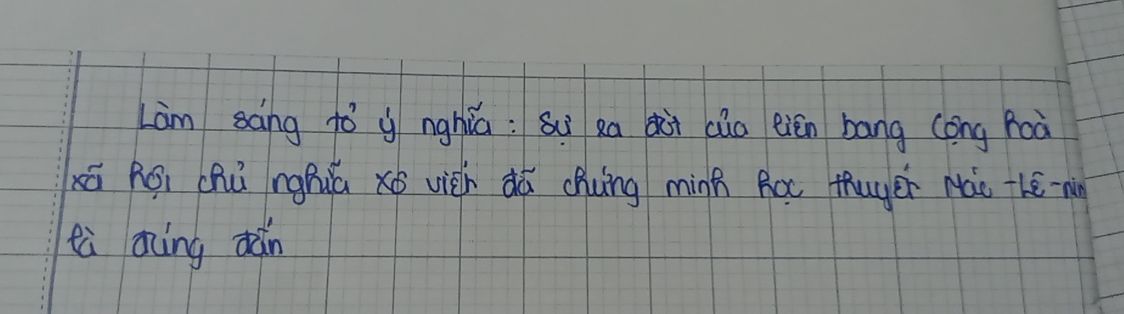 Làm sáng tỏ ý nghĩa : Sự ra đời của liên bang Cộng hoà
xã hội chủ nghĩa xô viết đã chứng minh học thuyết Mác - Lê-nin
là đúng đắn